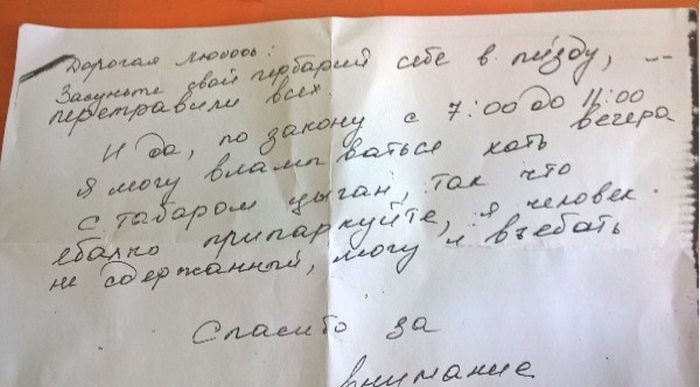 Дорогая Любовь!
Засуньте свой гербарий себе в пизду,
перетравили всех.
И да, по закону с 7:00 до 11:00
я могу вламываться хоть вечера
с табаром цыган, так что
ебалко припаркуйте, я человек
не сдержанный, могу и въебать
Спасибо за
внимание